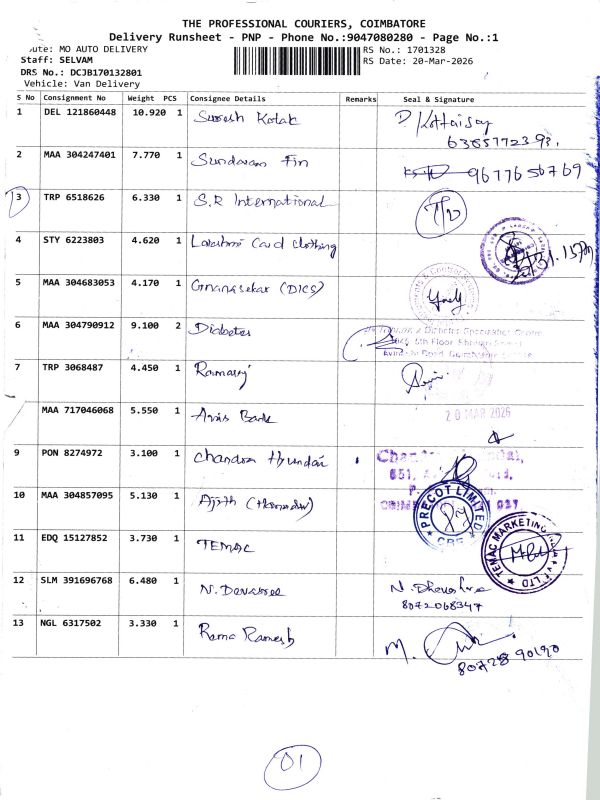 THE PROFESSIONAL COURIERS, COIMBATORE
Delivery Runsheet - PNP - Phone No.:9047080280 - Page No.:1
oute: MO AUTO DELIVERY RS No.: 1701328
Staff: SELVAM RS Date: 20-Mar-2026
DRS No.: DCJB170132801
Vehicle: Van Delivery
S No Consignment No Weight PCS Consignee Details Remarks Seal & Signature
1 DEL 121860448 10.920 1 Suresh Kotak
2 MAA 304247401 7.770 1 Sundaram Fin 9677656769
3 TRP 6518626 6.330 1 S.R International
4 STY 6223803 4.620 1 Lakshmi Card Clothing
5 MAA 304683053 4.170 1 Gnanasekar (DICS)
6 MAA 304790912 9.100 2 Diabetes
7 TRP 3068487 4.450 1 Ramaraj
MAA 717046068 5.550 1 Axis Bank 20 MAR 2026
9 PON 8274972 3.100 1 Chandra Hyundai
10 MAA 304857095 5.130 1 Ajith PRECOT LIMITED CBE
11 EDQ 15127852 3.730 1 TEMAC TEMAC MARKETING LTD
12 SLM 391696768 6.480 1 N.
8072068347
13 NGL 6317502 3.330 1 Rama Ramesh M.
01